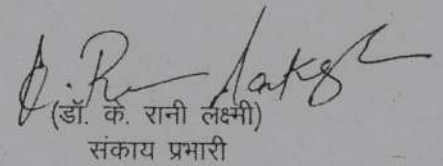 (डॉ. के. रानी लक्ष्मी)
संकाय प्रभारी